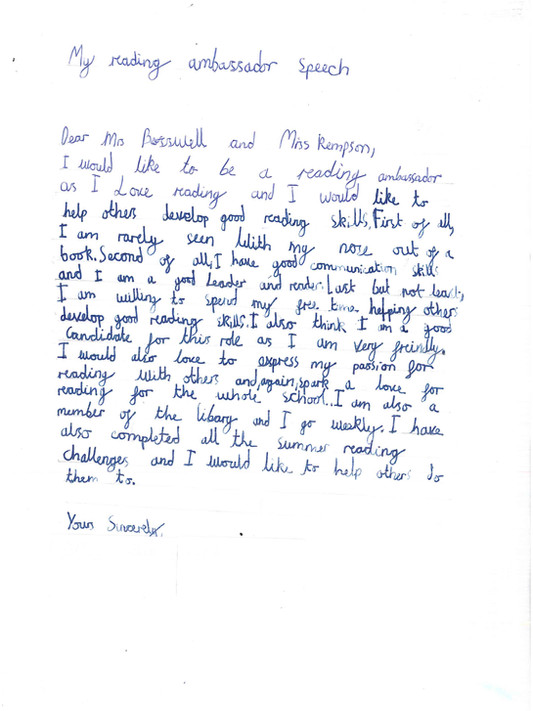 My reading ambassador speech
Dear Mrs Boswell and Mrs Kempson,
I would like to be a reading ambassador
as I Love reading and I would like to
help others develop good reading skills. First of all,
I am rarely seen with my nose out of a
book. Second of all, I have good communication skills
and I am a good Leader and reader. Last but not least,
I am willing to spend my free time helping others
develop good reading skills. I also think I am a good
Candidate for this role as I am very freindly.
I would also love to express my passion for
reading with others and, again, spark a love for
reading for the whole school. I am also a
member of the libary and I go weekly. I have
also completed all the summer reading
challenges and I would like to help others do
them to.
Yours Sincerely,